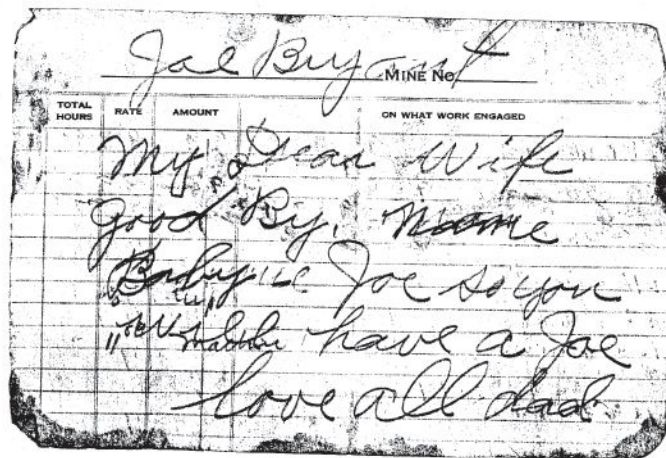 Joe Bryant
MINE NO.
TOTAL HOURS RATE AMOUNT ON WHAT WORK ENGAGED
My Dear Wife
Good By. Name
Baby Joe so you
have a Joe
love all dad